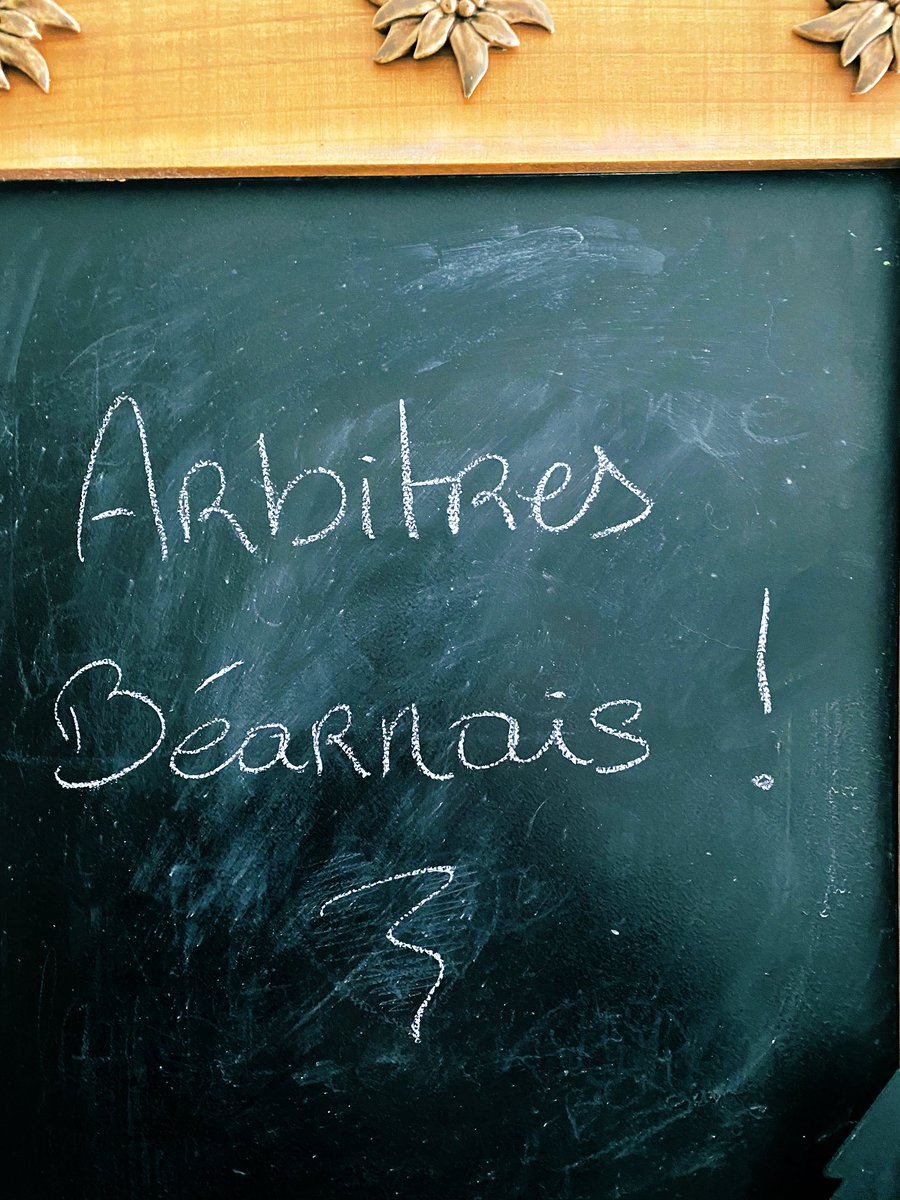 Arbitres
Béarnais !